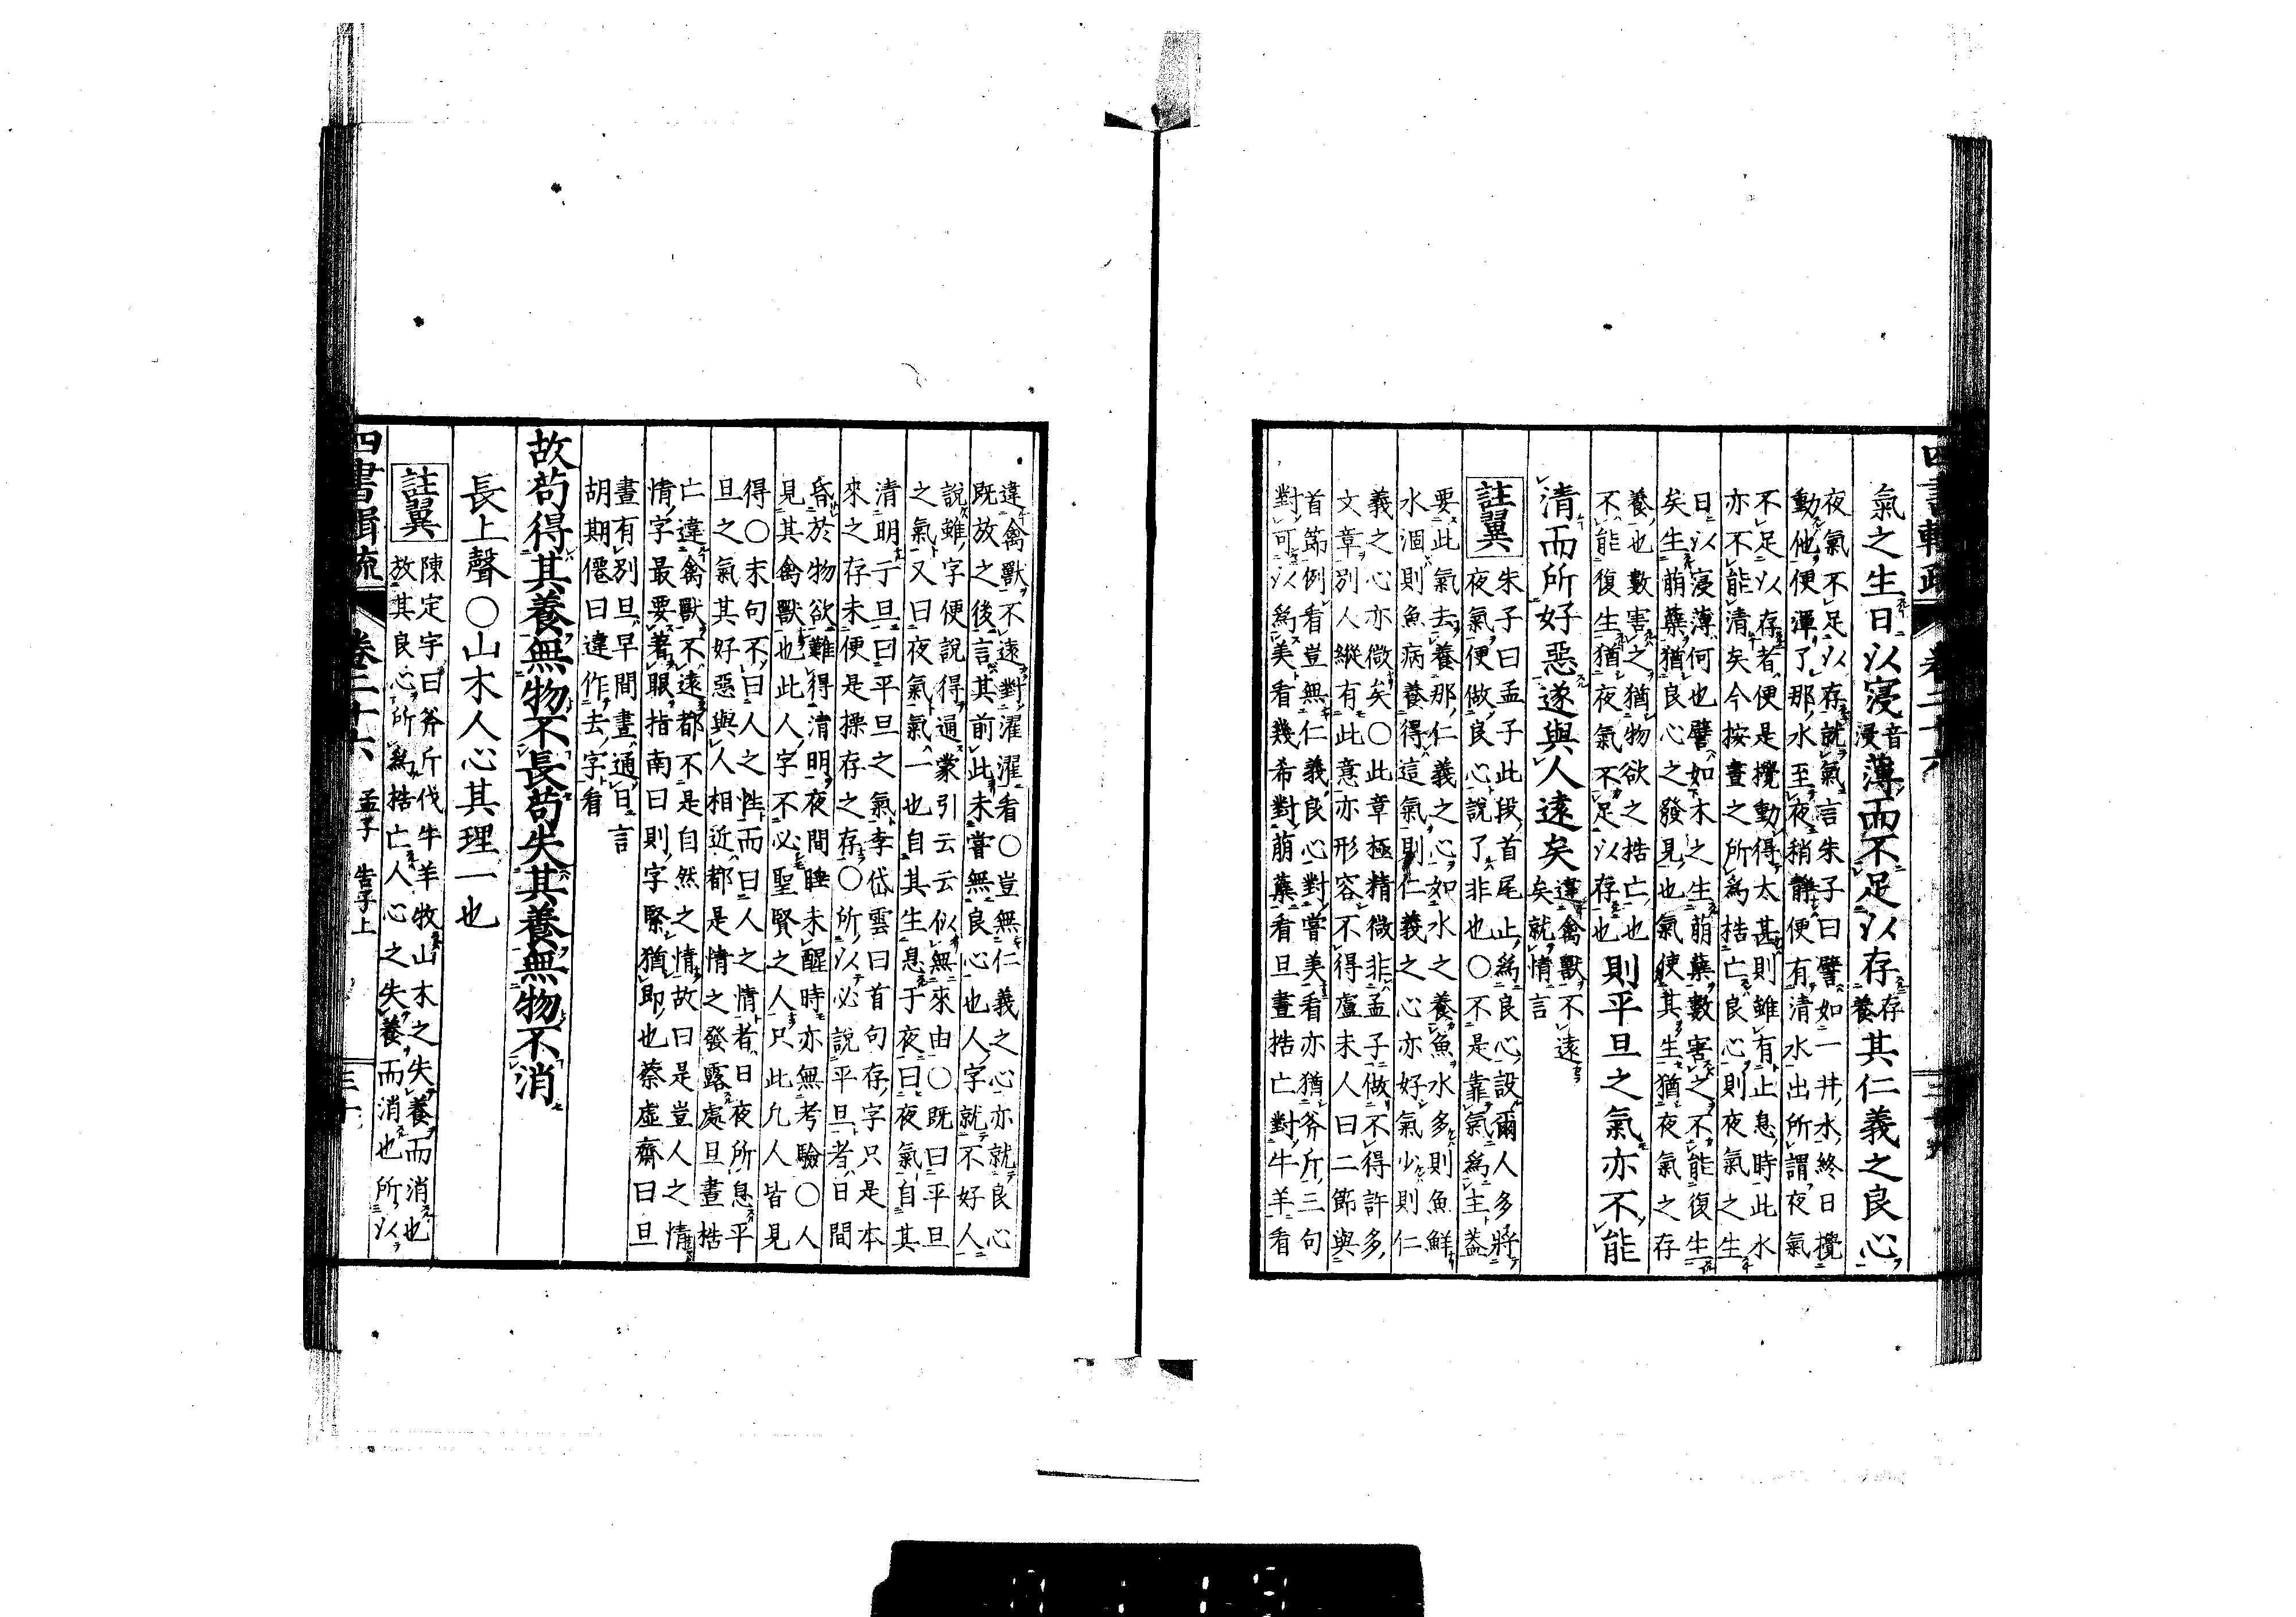 四書輯疏 卷二十六
氣之生日以寖音寖薄而不足以存存養其仁義之良心
夜氣不足以存就氣言朱子曰譬如一井水終日攪
動他便渾了那水至夜稍靜便有清水出所謂夜氣
不足以存者便是攪動得太甚則雖有止息時此水
亦不能清矣今按晝之所爲梏亡良心則夜氣之生
日以寖薄何也譬如木之生萠蘖數害之不能復生
矣生萠蘖猶良心之發見也氣使其生猶夜氣之存
養也數害之猶物欲之梏亡也
不能復生猶夜氣不足以存也則平旦之氣亦不能
清而所好惡遂與人遠矣違禽獸不遠
矣就情言
註翼
朱子曰孟子此段首尾止爲良心設爾人多將
夜氣便做良心說了非也○不是靠氣爲主葢
要此氣去養那仁義之心如水之養魚水多則魚鮮
水涸則魚病養得這氣則仁義之心亦好氣少則仁
義之心亦微矣○此章極精微非孟子做不得許多
文章別人縱有此意亦形容不得盧未人曰二節與
首節例看豈無仁義良心對嘗美看亦猶斧斤三句
對可以爲美看幾希對萠蘖看旦晝梏亡對牛羊看
違禽獸不遠對濯濯看○豈無仁義之心亦就良心
既放之後言其前此未嘗無良心也人字就不好人
說雖字便說得通蒙引云云似無來由○既曰平旦
之氣又曰夜氣氣一也自其生息于夜曰夜氣自其
清明于旦曰平旦之氣李岱雲曰首句存字只是本
來之存未便是操存之存○所以必說平旦者日間
昏於物欲難得清明夜間睡未醒時亦無考驗○人
見其禽獸也此人字不必聖賢之人只此凡人皆見
得○末句不曰人之性而曰人之情者日夜所息平
旦之氣其好惡與人相近都是情之發露處旦晝梏
亡違禽獸不遠都不是自然之情故曰是豈人之情
情字最要著眼指南曰則字緊猶即也蔡虛齋曰旦
晝有別旦早間晝通日言
胡期僊曰違作去字看
故苟得其養無物不長苟失其養無物不消
長上聲○山木人心其理一也
註翼
陳定宇曰斧斤伐牛羊牧山木之失養而消也
放其良心所爲梏亡人心之失養而消也所以
四書輯疏 卷二十六 孟子 告子上